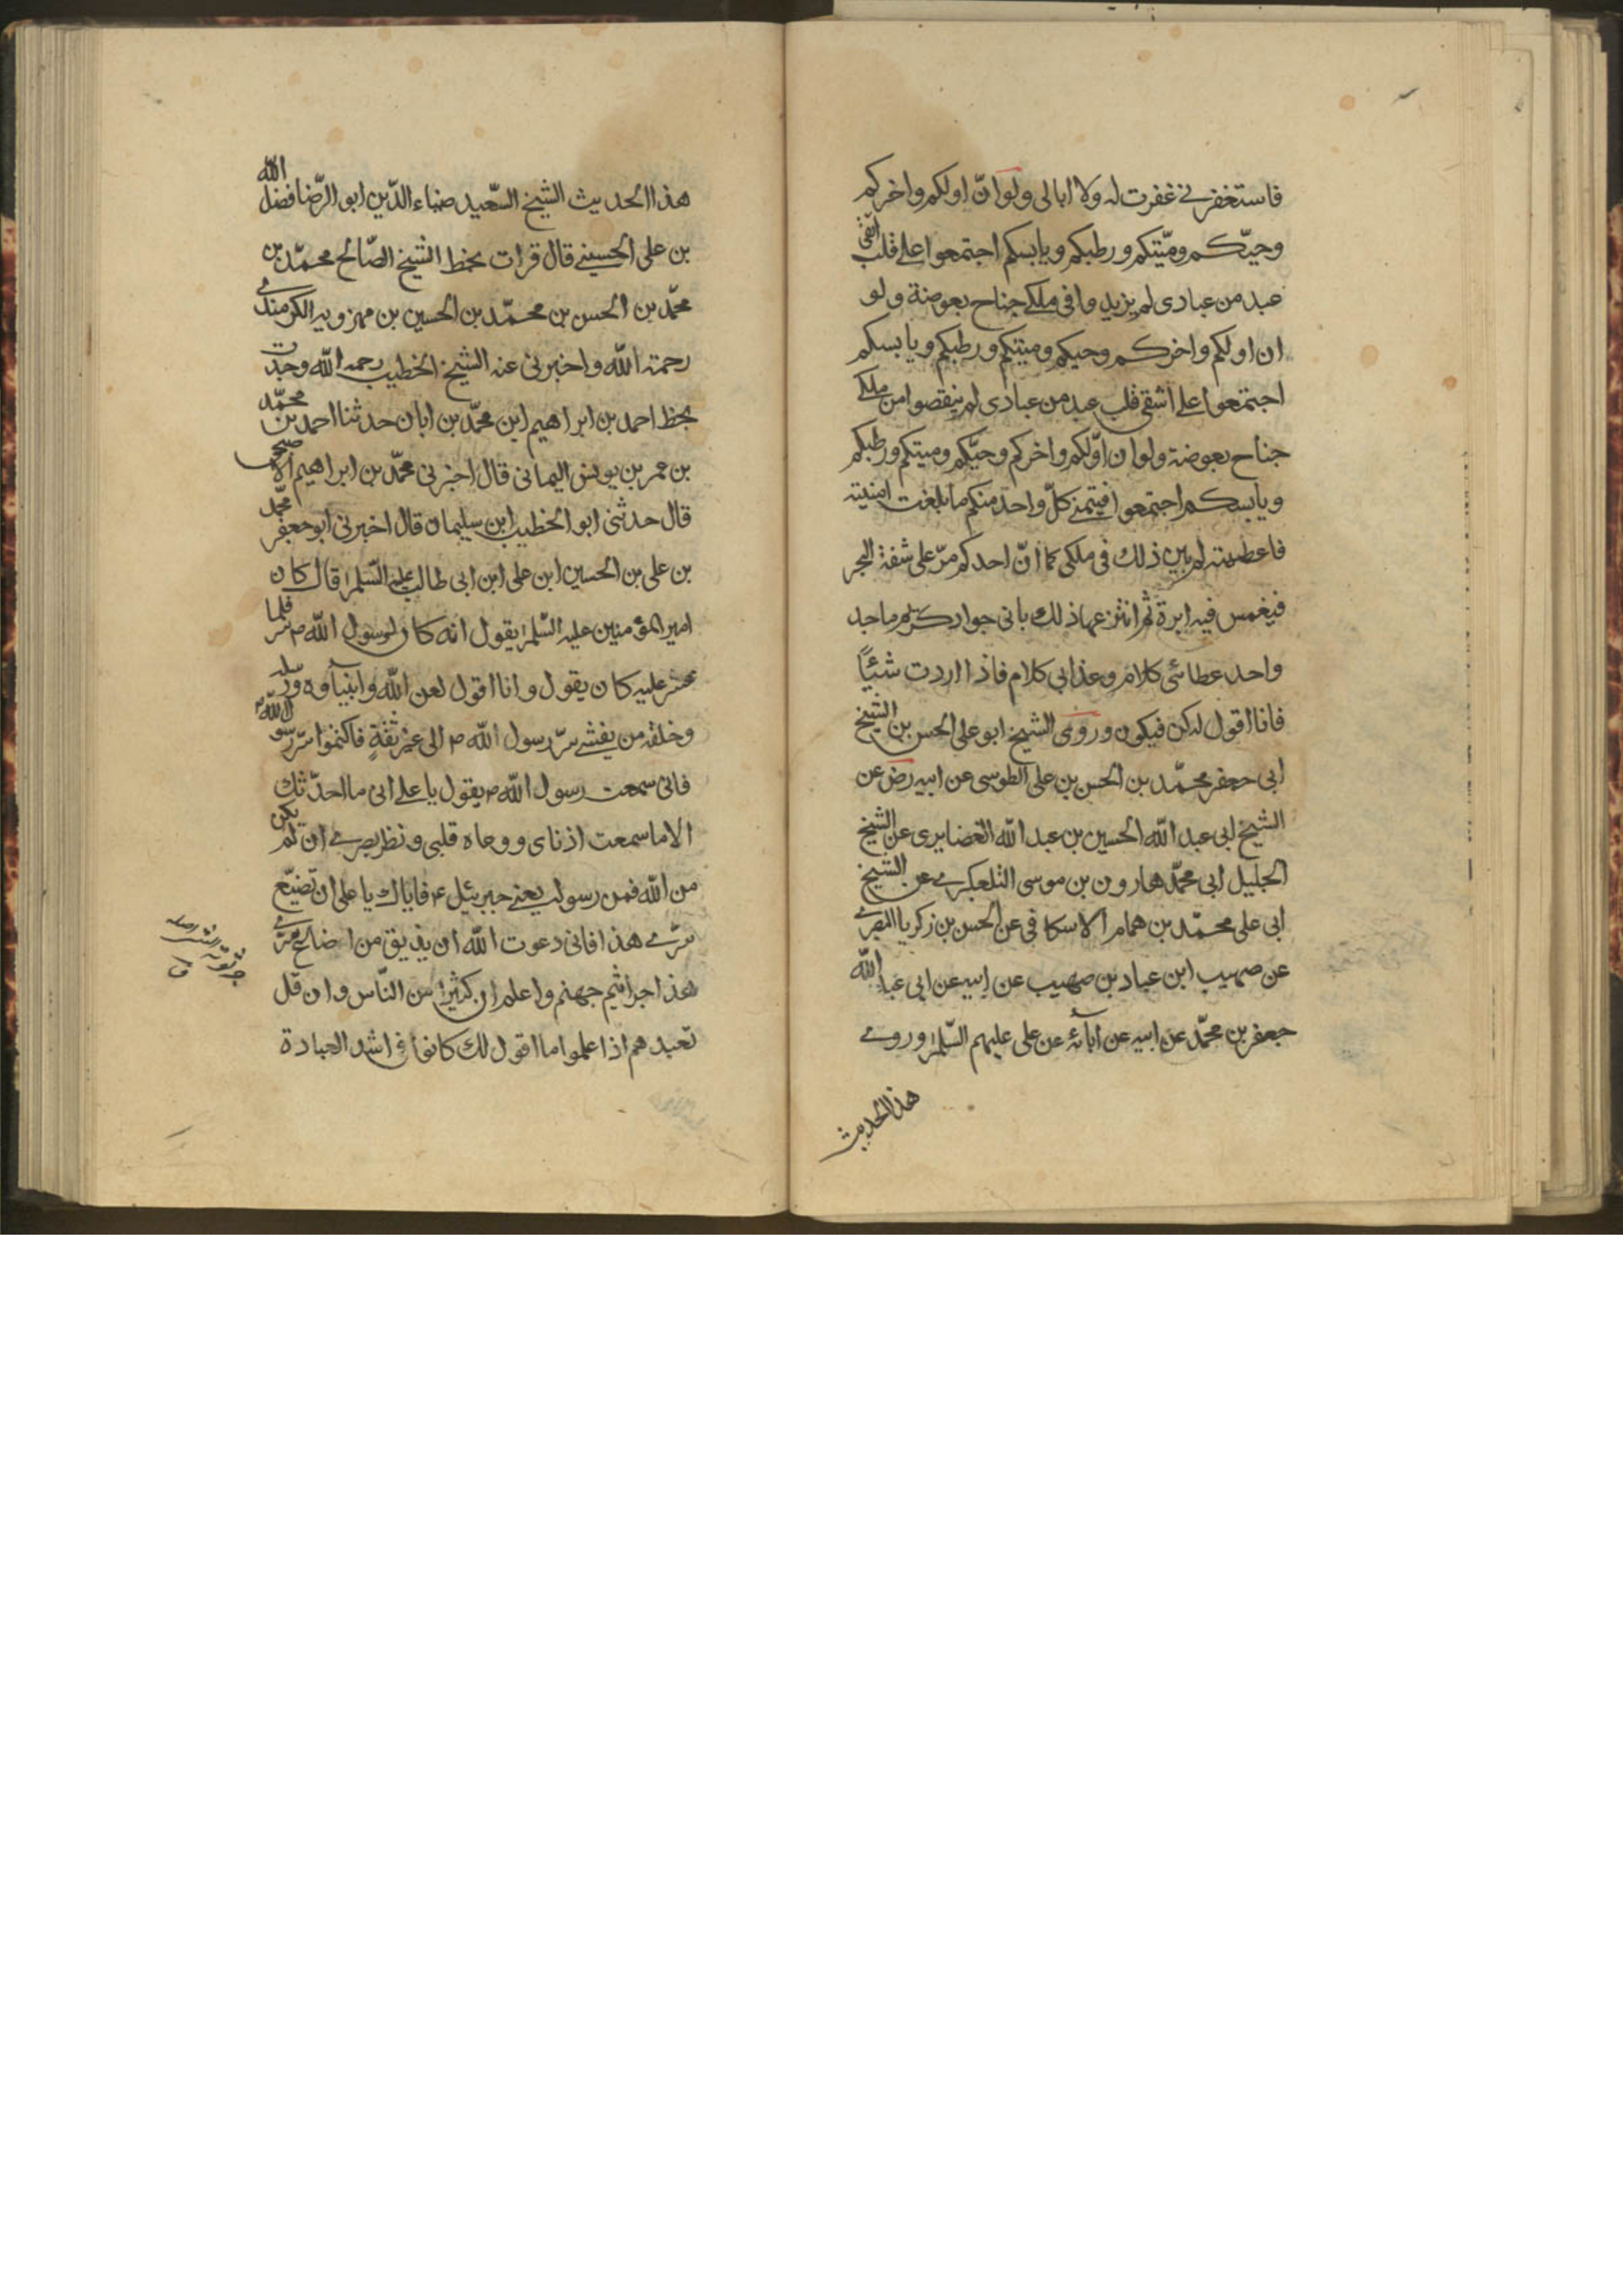 فاستغفرني غفرت له ولا ابالی ولو انّ اولكم واخركم
وحيّكم وميّتكم ورطبكم ويابسكم اجتمعوا علی قلب اتقی
عبد من عبادی لم يزيدوا فی ملكی جناح بعوضة ولو
ان اولكم واخركم وحيكم وميتكم ورطبكم ويابسكم
اجتمعوا علی اشقی قلب عبد من عبادی لم ينقصوا من ملكی
جناح بعوضة ولو ان اوّلكم واخركم وحيّكم وميتكم ورطبكم
ويابسكم اجتمعوا فيتمنی كلّ واحد منكم ما بلغت امنيته
فاعطيته لم يبين ذلك فی ملكی كما انّ احدكم مرّ علی شفة البحر
فيغمس فيه ابرة ثم انتزعها ذلك بانی جواد كريم ماجد
واحد عطائی كلام وعذابی كلام فاذا اردت شيئًا
فانا اقول له كن فيكون وروی الشيخ ابو علی الحسن بن الشيخ
ابی جعفر محمّد بن الحسن بن علی الطوسی عن ابيه رض عن
الشيخ ابی عبد الله الحسين بن عبد الله الغضايری عن الشيخ
الجليل ابی محمّد هارون بن موسی التلعكبری عن الشيخ
ابی علی محمّد بن همام الاسكافی عن الحسن بن زكريا البصری
عن صهيب ابن عباد بن صهيب عن ابيه عن ابی عبد الله
جعفر بن محمّد عن ابيه عن آبائه عن علی عليهم السّلم وروی
هذا الحديث
هذا الحديث الشيخ السّعيد ضياء الدّين ابو الرّضا فضل الله
بن علی الحسينی قال قرات بخط الشيخ الصّالح محمّد بن
محمّد بن الحسن بن محمّد بن الحسين بن مهرويه الكرمندی
رحمة الله واخبرنی عنه الشيخ الخطيب رحمه الله وجدت
بخط احمد بن ابراهيم ابن محمّد بن ابان حدثنا احمد بن محمّد
بن عمر بن يونس اليمانی قال اخبرنی محمّد بن ابراهيم الاصبحی
قال حدثنی ابو الخطيب ابن سليمان قال اخبرنی ابو جعفر محمّد
بن علی بن الحسين ابن علی ابن ابی طالب عليهم السّلم قال كان
امير المؤمنين عليه السّلم يقول انه كان لرسول الله ص سر قلما
عثر عليه كان يقول وانا اقول لعن الله وانبيآوه ورسله
وخلقه من يفشی سرّ رسول الله ص الی غير ثقةٍ فاكتموا سرّ رسول الله ص
فانی سمعت رسول الله ص يقول يا علی انی ما احدّثك
الا ما سمعت اذنای ووعاه قلبی ونظر بصری ان لم يكن
من الله فمن رسوله يعنی جبرئيل ع فاياك يا علی ان تضيّع
سرّی هذا فانی دعوت الله ان يذيق من اضاع سرّی
هذا جراثيم جهنم واعلم ان كثيرا من النّاس وان قل
تعبدهم اذا علموا ما اقول لك كانوا فی اشد العبادة